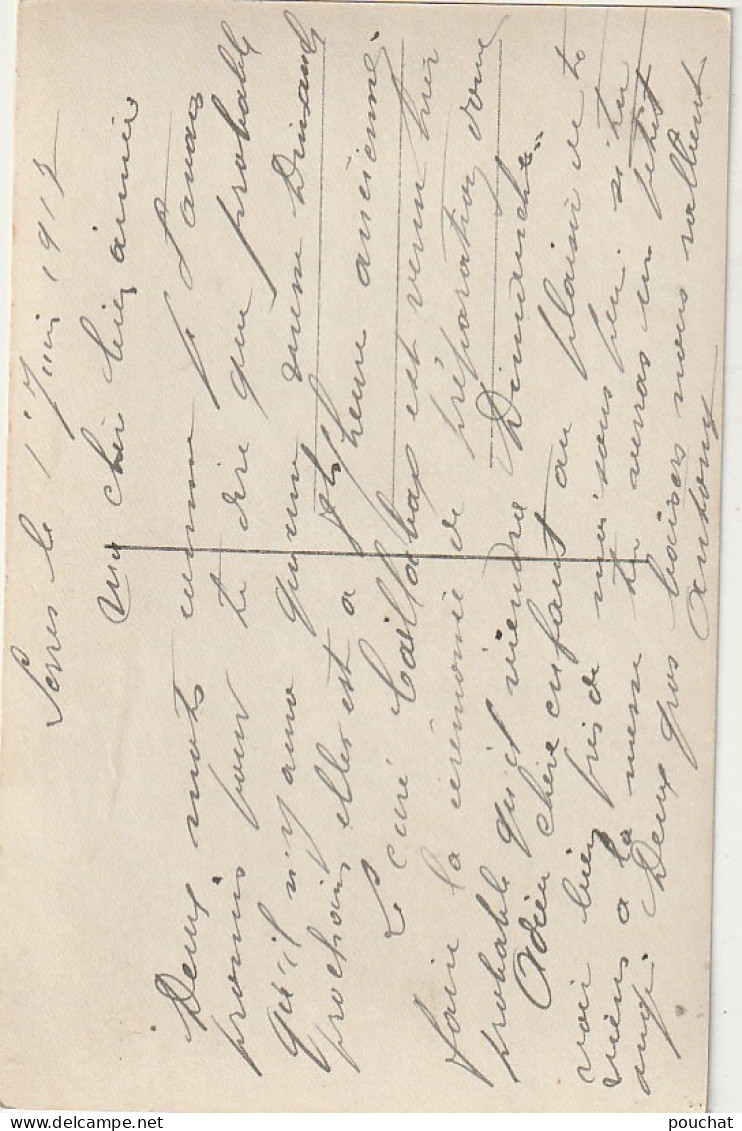 Serres le 1 Juin 1915
Ma chèr bien aimée
Deux mots comme je t'avais
promis pour te dire que probable
qu'il n'y aura qu'une messe Dimanche
prochain, elle est a heure ancienne
Le curé Caillabas est venu hier
faire la cérémonie de préparation donc
probable qu'il viendra Dimanche..
Adieu chère enfant au plaisir de te
voir bien près de nous sous peu si tu
viens a la messe tu verras un petit
ange. Deux gros baisers nous rallient
Antony
pouchat